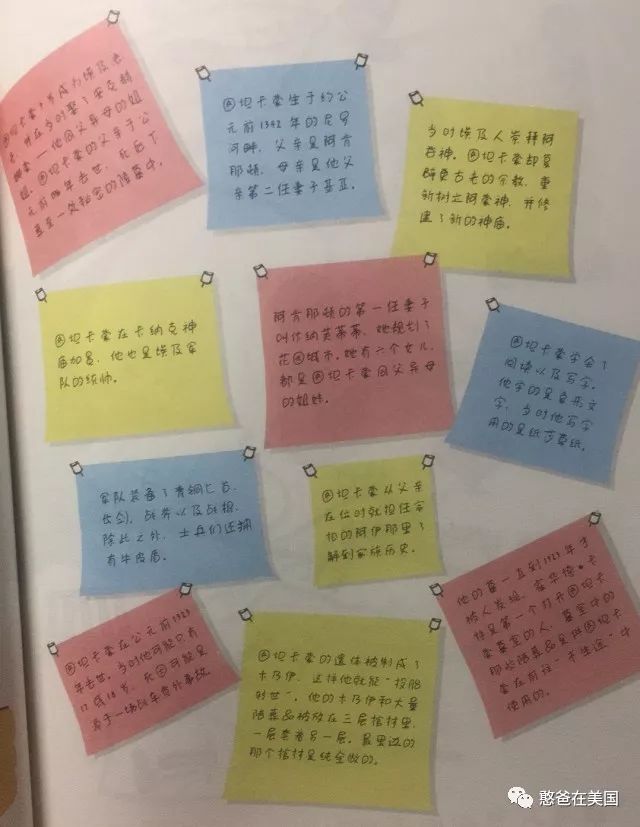 图坦卡蒙9岁成为埃及法
老,并在当时娶了安克赫
娜蒙——他同父异母的姐
姐。图坦卡蒙的父亲于公
元前 年去世,死后下
葬至一处秘密的陵墓中。
图坦卡蒙生于约公
元前1342年的尼罗
河畔,父亲是阿肯
那顿,母亲是他父
亲第二任妻子基亚。
当时埃及人崇拜阿
吞神。图坦卡蒙却复
辟更古老的宗教,重
新树立阿蒙神,并修
建了新的神庙。
图坦卡蒙在卡纳克神
庙加冕,他也是埃及军
队的统帅。
阿肯那顿的第一任妻子
叫作纳芙蒂蒂,她规划了
花园城市。她有六个女儿,
都是图坦卡蒙同父异母
的姐妹。
图坦卡蒙学会了
阅读以及写字。
他学的是象形文
字,当时他写字
用的是纸莎草纸。
军队装备了青铜匕首、
长剑、战斧以及战棍,
除此之外,士兵们还拥
有牛皮盾。
图坦卡蒙从父亲
在位时就担任宰
相的阿伊那里了
解到家族历史。
他的墓一直到1923年才
被人发现,霍华德·卡
特是第一个打开图坦卡
蒙墓室的人,墓室中的
那些陪葬品是供图坦卡
蒙在前往“来生途”中
使用的。
图坦卡蒙在公元前1323
年去世,当时他可能只有
17或18岁,死因可能是
源于一场战车意外事故。
图坦卡蒙的遗体被制成了
木乃伊,这样他就能“投胎
转世”。他的木乃伊和大量
陪葬品被放在三层棺材里,
一层套着另一层,最里边的
那个棺材是纯金做的。
憨爸在美国